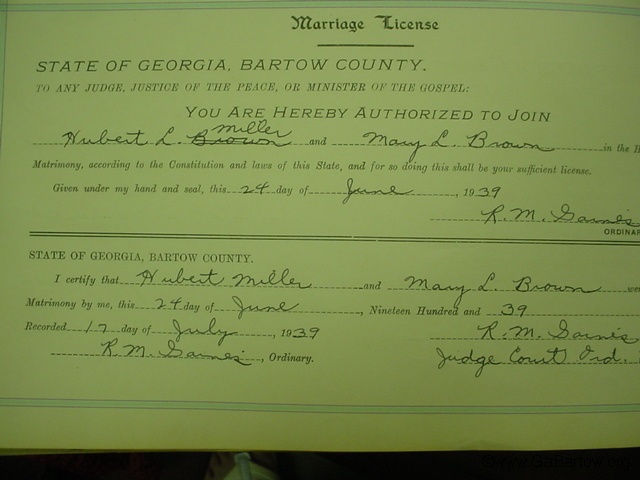 Marriage License
STATE OF GEORGIA, BARTOW COUNTY.
TO ANY JUDGE, JUSTICE OF THE PEACE, OR MINISTER OF THE GOSPEL:
YOU ARE HEREBY AUTHORIZED TO JOIN
Miller
Hubert L. Brown and Mary L. Brown in the H
Matrimony, according to the Constitution and laws of this State, and for so doing this shall be your sufficient license.
Given under my hand and seal, this 24 day of June, 1939
R. M. Gaines
ORDINAR
STATE OF GEORGIA, BARTOW COUNTY.
I certify that Hubert Miller and Mary L. Brown wer
Matrimony by me, this 24 day of June, Nineteen Hundred and 39
Recorded 17 day of July, 1939 R. M. Gaines
R. M. Gaines, Ordinary. Judge Court Ord.